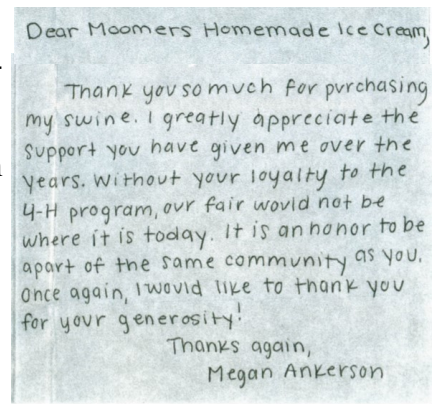 Dear Moomers Homemade Ice Cream,
Thank you so much for purchasing
my swine. I greatly appreciate the
support you have given me over the
years. Without your loyalty to the
4-H program, our fair would not be
where it is today. It is an honor to be
apart of the same community as you.
Once again, I would like to thank you
for your generosity!
Thanks again,
Megan Ankerson